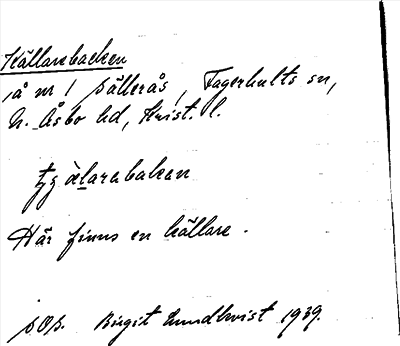 Källarebacken
å nr 1 Sällerås, Fagerhults sn,
N. Åsbo hd, Krist. l.
Här finns en källare.
Birgit Lundkvist 1939.